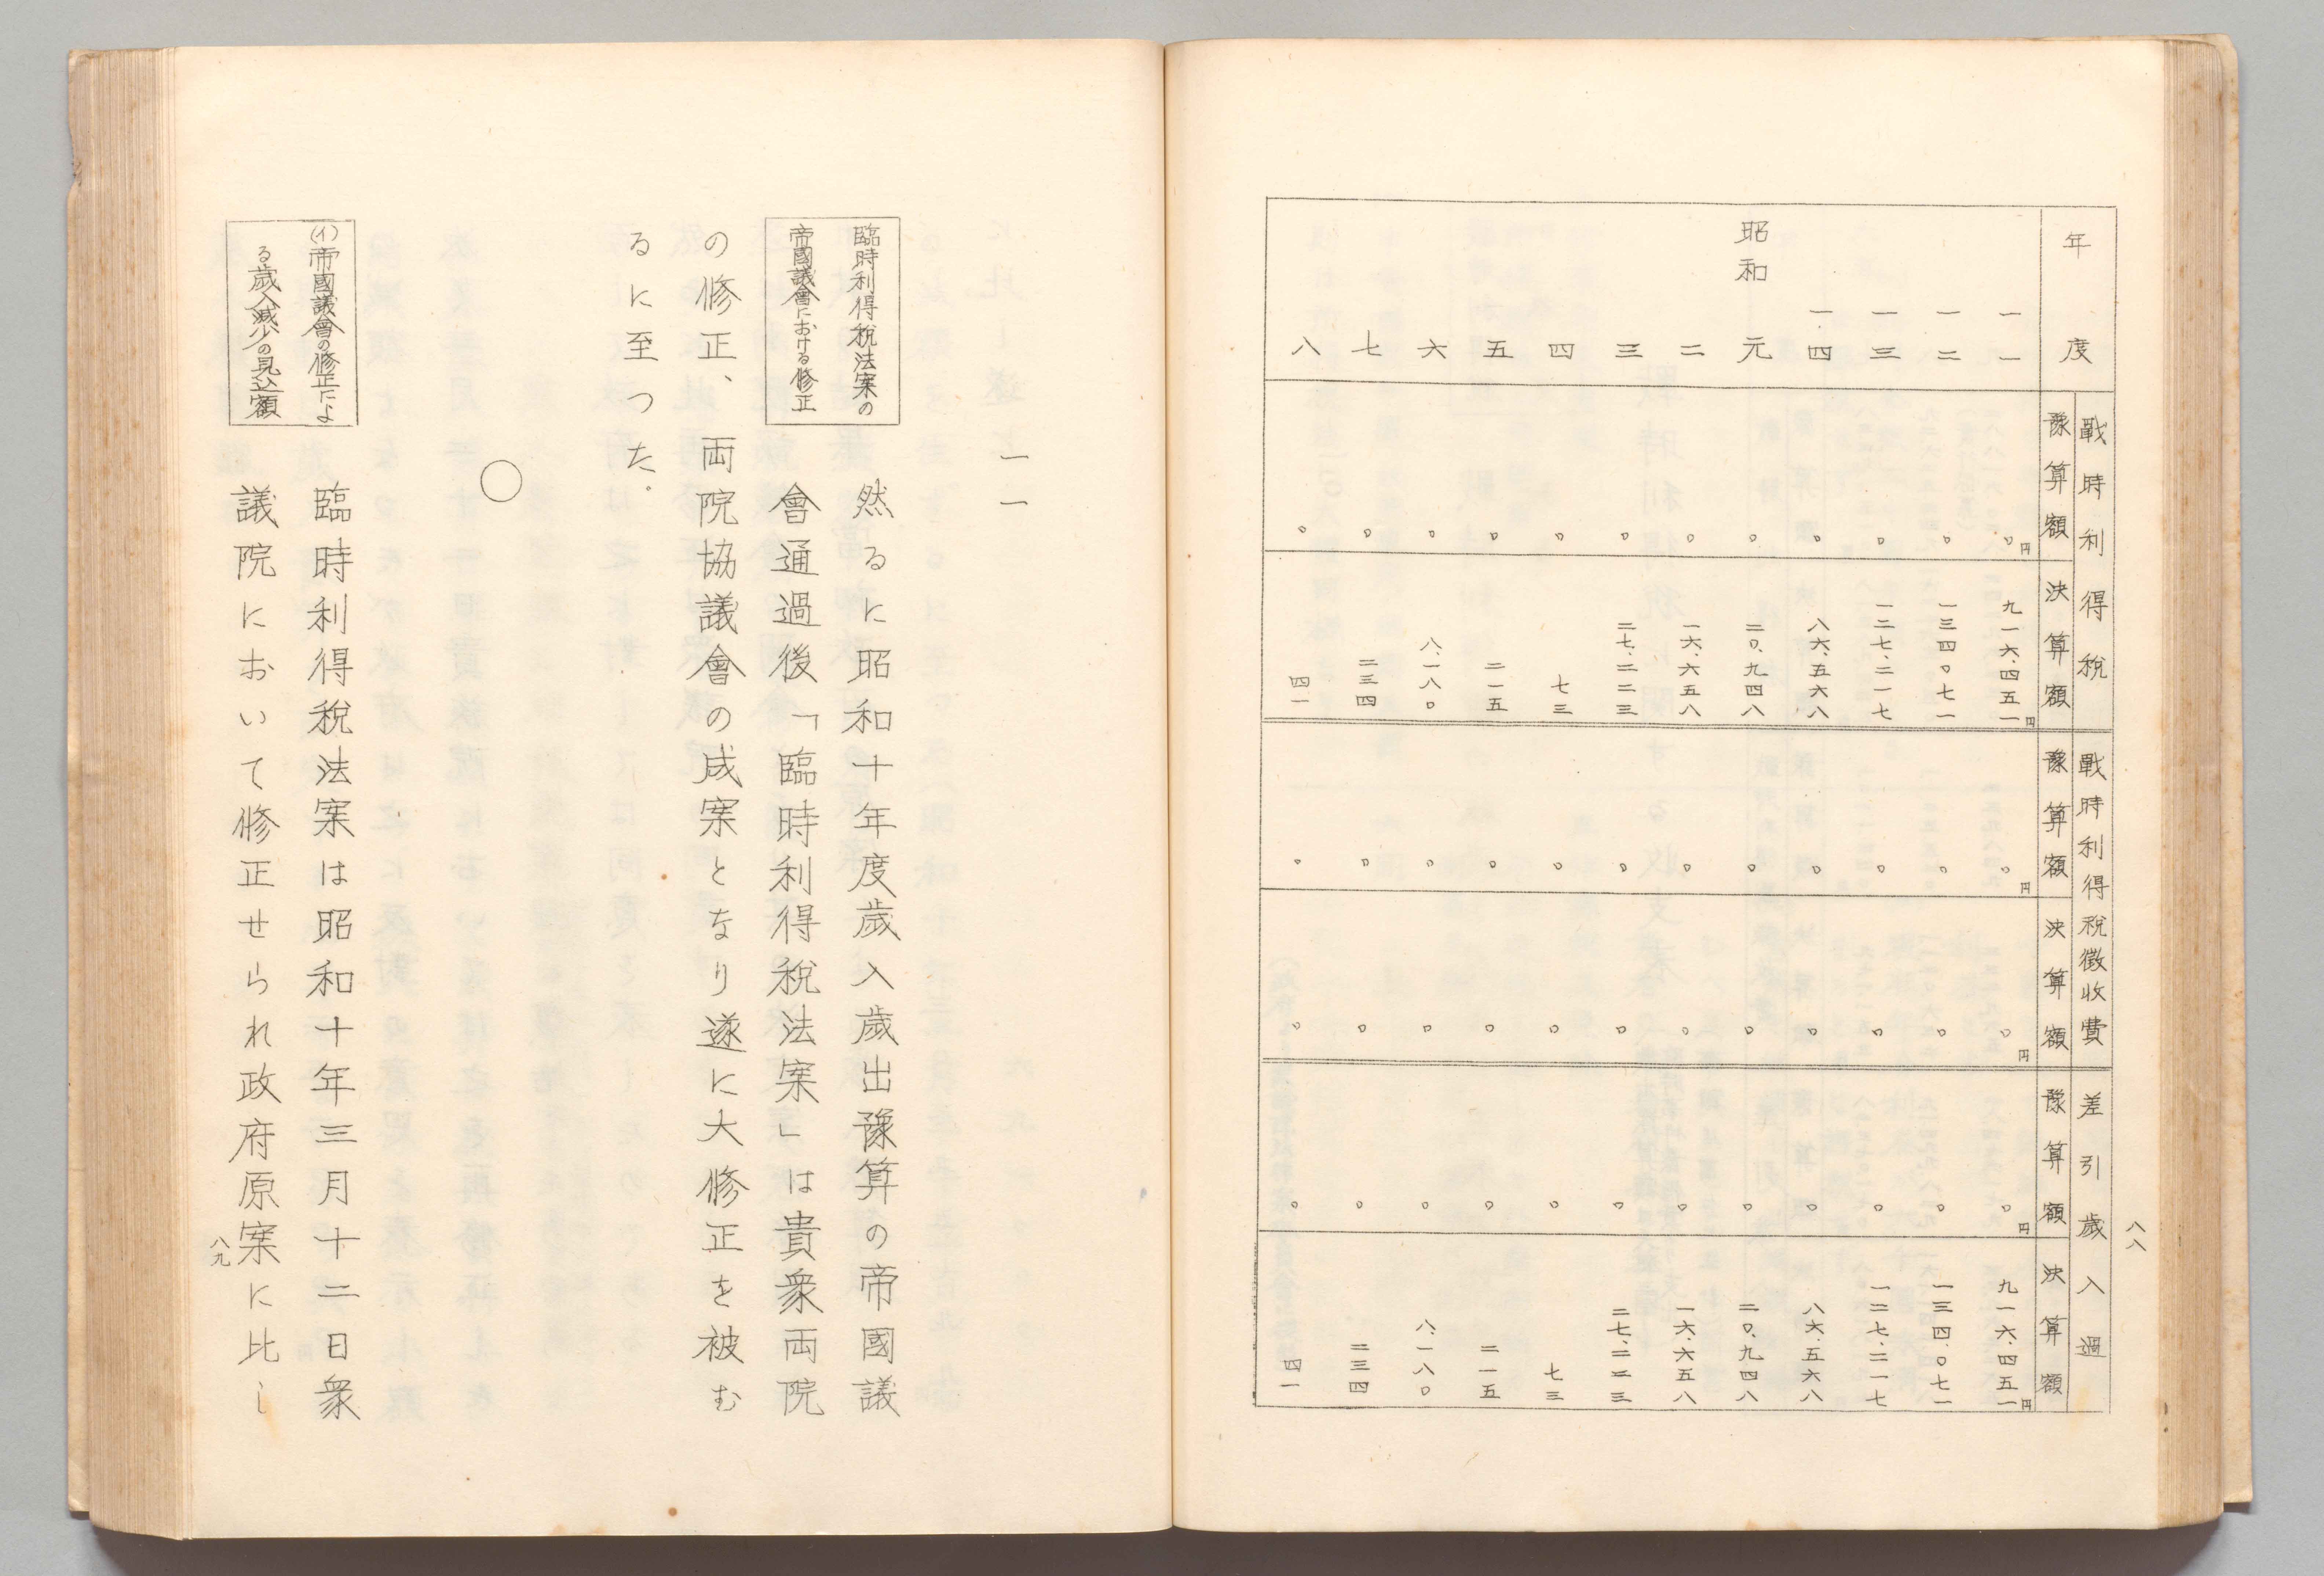 八八
年度
戰時利得稅
豫算額
決算額
戰時利得稅徵收費
豫算額
決算額
差引歲入過
豫算額
決算額
一一 〇円 九一六、四五一円 〇円 〇円 〇円 九一六、四五一円
一二 〇 一三四、〇七一 〇 〇 〇 一三四、〇七一
一三 〇 一二七、二一七 〇 〇 〇 一二七、二一七
一四 〇 八六、五六八 〇 〇 〇 八六、五六八
昭和元 〇 二〇、九四八 〇 〇 〇 二〇、九四八
二 〇 一六、六五八 〇 〇 〇 一六、六五八
三 〇 二七、二二三 〇 〇 〇 二七、二二三
四 〇 七三 〇 〇 〇 七三
五 〇 二一五 〇 〇 〇 二一五
六 〇 八、一八〇 〇 〇 〇 八、一八〇
七 〇 二三四 〇 〇 〇 二三四
八 〇 四一 〇 〇 〇 四一
一一
臨時利得稅法案の
帝國議會における修正
然るに昭和十年度歲入歲出豫算の帝國議
會通過後「臨時利得稅法案」は貴衆両院
の修正、両院協議會の成案となり遂に大修正を被む
るに至つた。
○
(イ)帝國議會の修正によ
る歲入減少の見込額
臨時利得稅法案は昭和十年三月十二日衆
議院において修正せられ政府原案に比し
八九